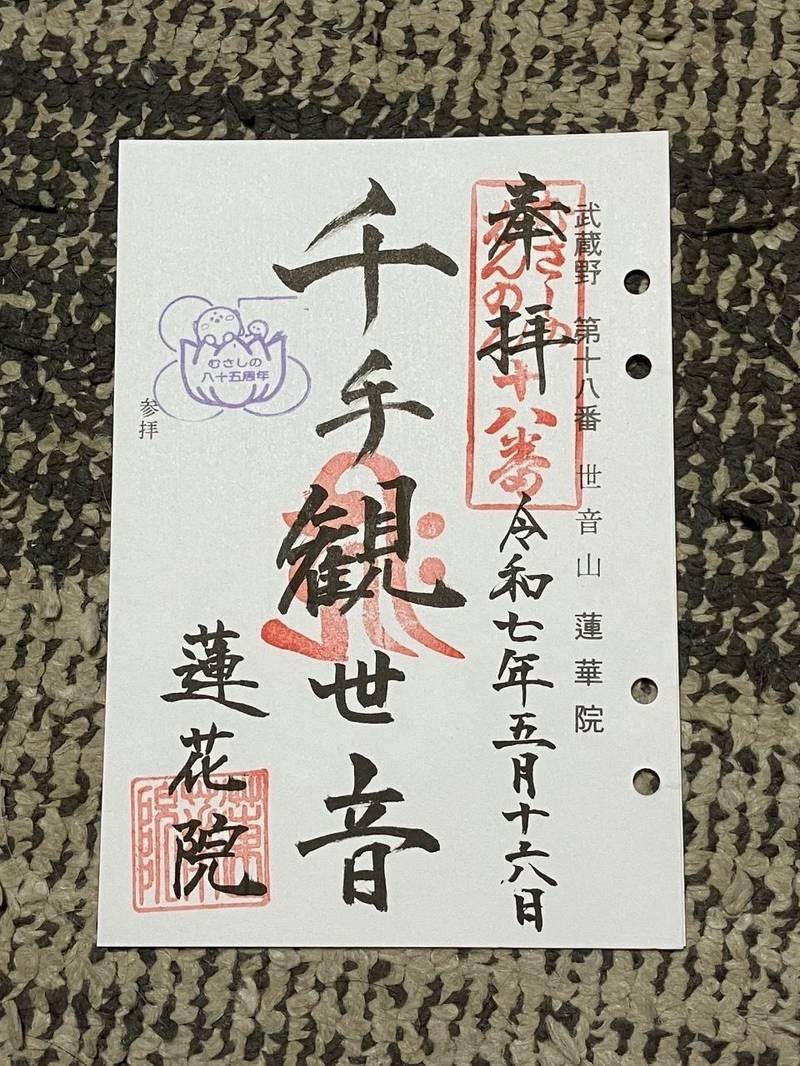 武蔵野 第十八番 世音山 蓮華院
奉拝 令和七年五月十六日
十八番
千手観世音
蓮花院
むさしの
八十五周年
参拝